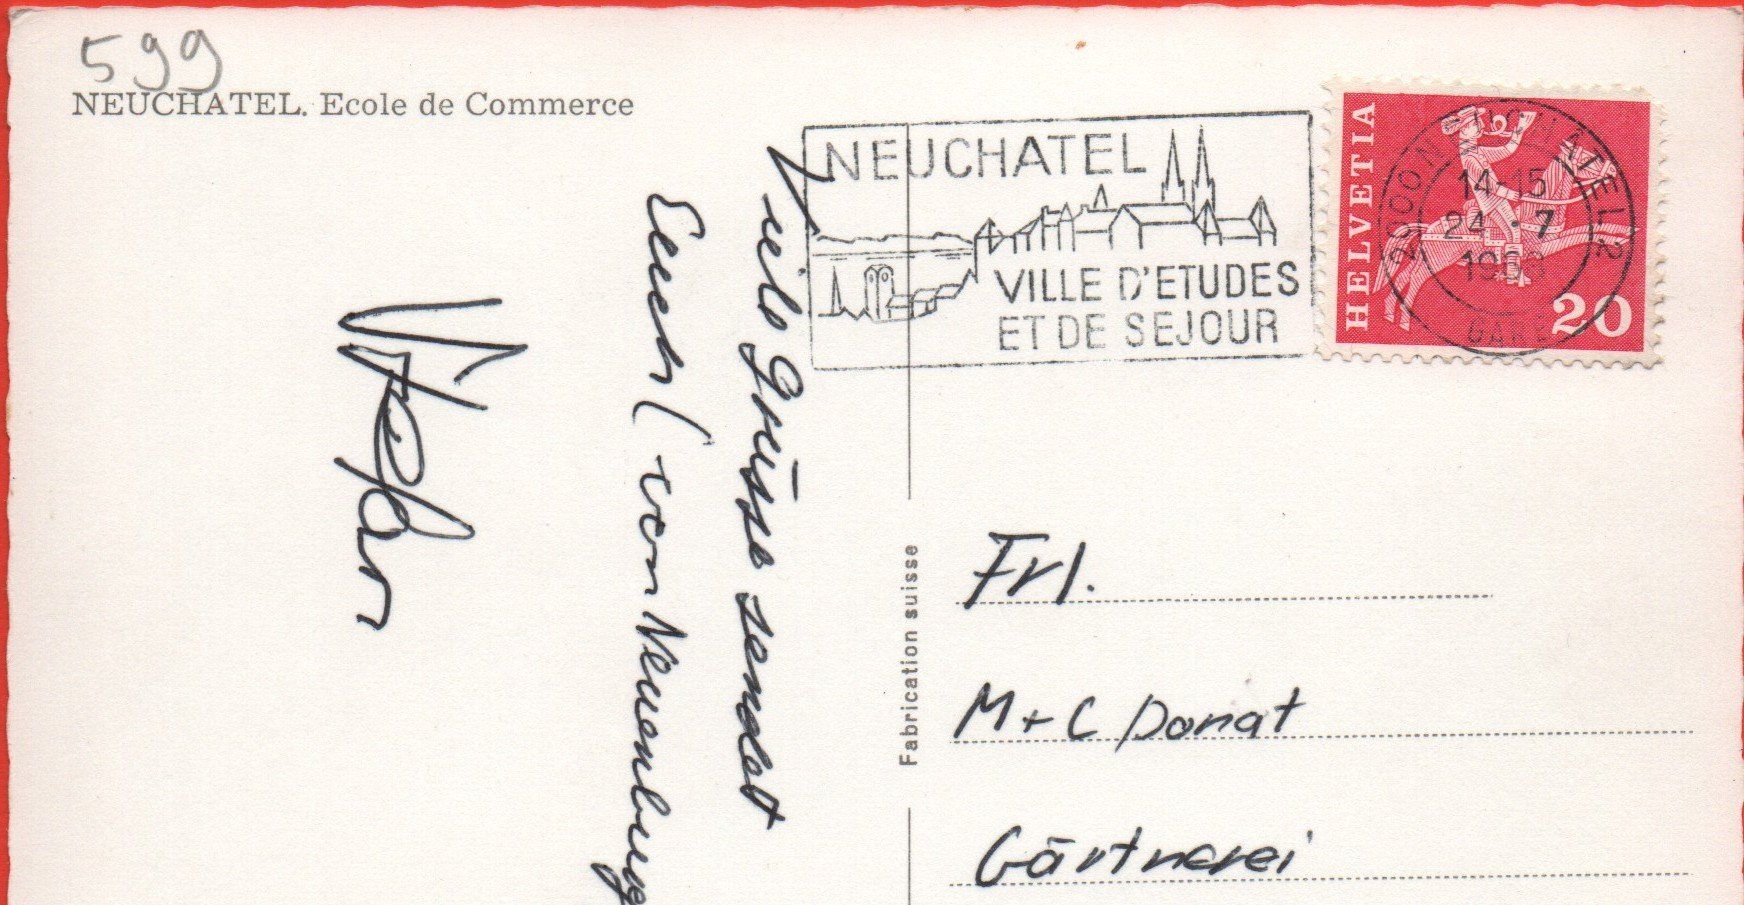 599
NEUCHATEL. Ecole de Commerce
NEUCHATEL
VILLE D'ETUDES
ET DE SEJOUR
HELVETIA
20
2000 NEUCHATEL 2
14-15
24.-7
GARE
Viele Grüsse sendet
Euch (von Neuenburg
Stefan
Fabrication suisse
Frl.
M + C Donat
Gärtnerei